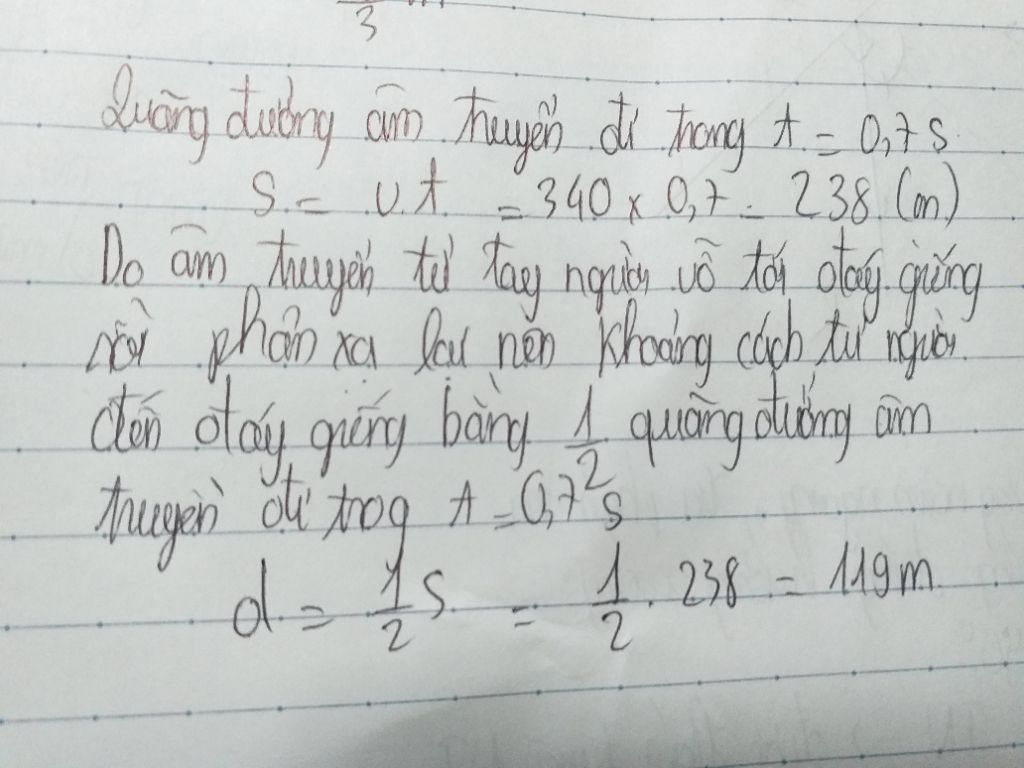 3
Quãng đường âm truyền đi trong t = 0,7s
S = v.t = 340 x 0,7 = 238 (m)
Do âm truyền từ tay người vỗ tới đáy giếng
rồi phản xạ lại nên khoảng cách từ người
đến đáy giếng bằng 1/2 quãng đường âm
truyền đi trog t = 0,7s
d = 1/2 S = 1/2 . 238 = 119m